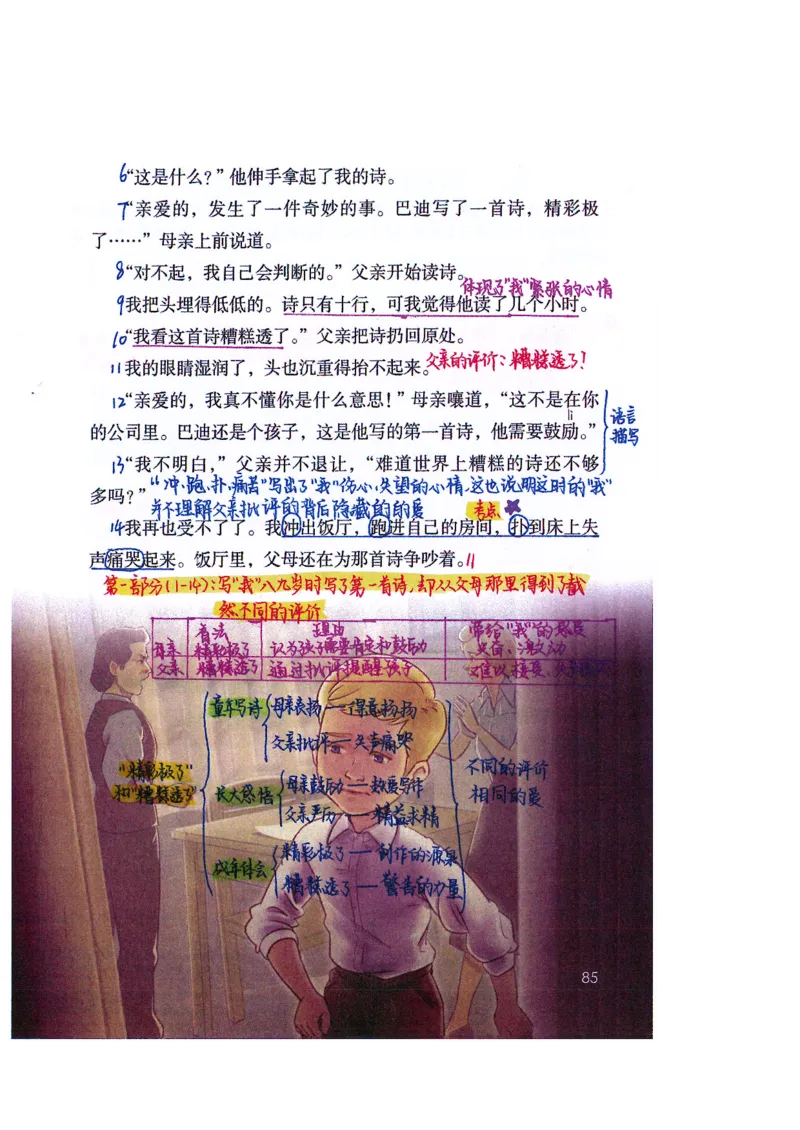 6“这是什么？”他伸手拿起了我的诗。
7“亲爱的，发生了一件奇妙的事。巴迪写了一首诗，精彩极
了……”母亲上前说道。
8“对不起，我自己会判断的。”父亲开始读诗。
体现了“我”紧张的心情
9我把头埋得低低的。诗只有十行，可我觉得他读了几个小时。
10“我看这首诗糟糕透了。”父亲把诗扔回原处。
11我的眼睛湿润了，头也沉重得抬不起来。
父亲的评价：糟糕透了！
12“亲爱的，我真不懂你是什么意思！”母亲嚷道，“这不是在你
的公司里。巴迪还是个孩子，这是他写的第一首诗，他需要鼓励。”
语言
描写
13“我不明白，”父亲并不退让，“难道世界上糟糕的诗还不够
多吗？”
“冲、跑、扑、痛苦”写出了“我”伤心、失望的心情，这也说明这时的“我”
并不理解父亲批评的背后隐藏的的爱
考点
14我再也受不了了。我冲出饭厅，跑进自己的房间，扑到床上失
声痛哭起来。饭厅里，父母还在为那首诗争吵着。//
第一部分(1-14)：写“我”八九岁时写了第一首诗，却从父母那里得到了截
然不同的评价
看法 理由 带给“我”的感受
母亲 精彩极了 认为孩子需要肯定和鼓励 兴奋、激动
父亲 糟糕透了 通过批评提醒孩子 难以接受、
童年写诗 母亲表扬——得意扬扬
父亲批评——失声痛哭
“精彩极了”
和“糟糕透了”
长大感悟 母亲鼓励——热爱写作
父亲严厉——精益求精
成年体会 精彩极了——创作的源泉
糟糕透了——警告的力量
不同的评价
相同的爱
85